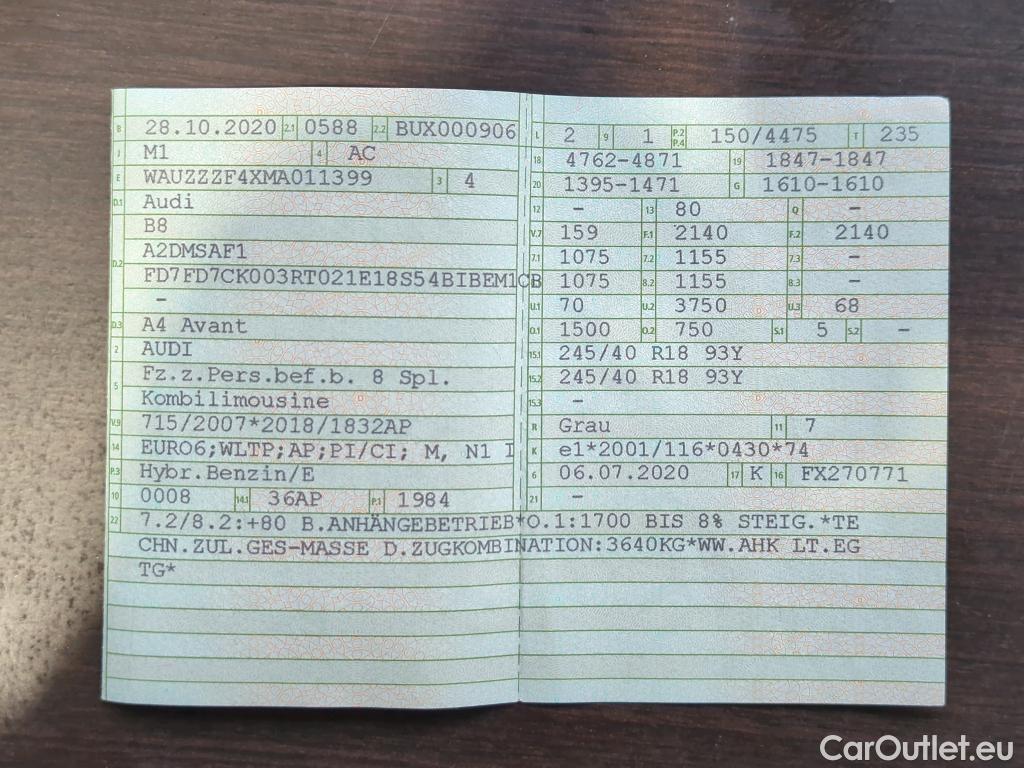 B 28.10.2020 2.1 0588 2.2 BUX000906
J M1 4 AC
E WAUZZZF4XMA011399 3 4
D.1 Audi
B8
D.2 A2DMSAF1
FD7FD7CK003RT021E18S54BIBEM1CB
-
D.3 A4 Avant
2 AUDI
5 Fz.z.Pers.bef.b. 8 Spl.
Kombilimousine
V.9 715/2007*2018/1832AP
14 EURO6;WLTP;AP;PI/CI; M, N1 I
P.3 Hybr.Benzin/E
10 0008 14.1 36AP P.1 1984
L 2 9 1 P.2 P.4 150/4475 T 235
18 4762-4871 19 1847-1847
20 1395-1471 G 1610-1610
12 - 13 80 Q -
V.7 159 F.1 2140 F.2 2140
7.1 1075 7.2 1155 7.3 -
8.1 1075 8.2 1155 8.3 -
U.1 70 U.2 3750 U.3 68
O.1 1500 O.2 750 S.1 5 S.2 -
15.1 245/40 R18 93Y
15.2 245/40 R18 93Y
15.3 -
R Grau 11 7
K e1*2001/116*0430*74
6 06.07.2020 17 K 16 FX270771
21 -
22 7.2/8.2:+80 B.ANHÄNGEBETRIEB*O.1:1700 BIS 8% STEIG.*TE
CHN.ZUL.GES-MASSE D.ZUGKOMBINATION:3640KG*WW.AHK LT.EG
TG*
CarOutlet.eu